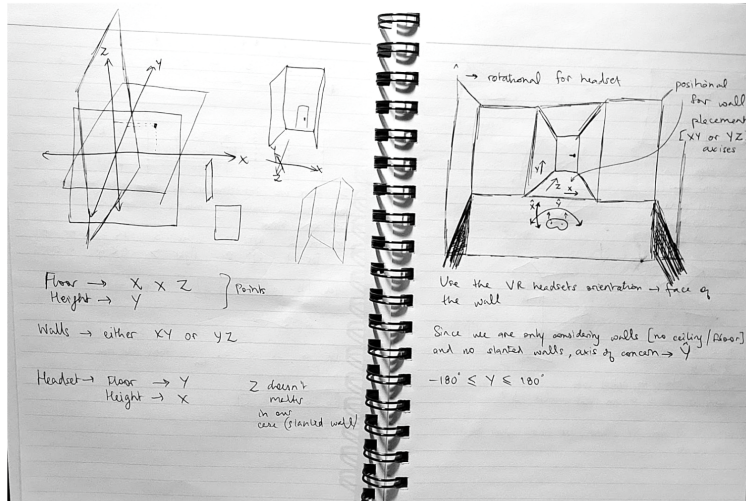 Z
Y
X
Z
X
Floor → X x Z
Height → Y
} Points
Walls → either XY or YZ
Headset → Floor → Y
Height → X
Z doesn't
in our
case (slanted wall)
^ → rotational for headset
positional
for wall
placement
[XY or YZ
axises
Y
Z
X
X̂
Ŷ
Use the VR headsets orientation → face of
the wall
Since we are only considering walls [no ceiling/floor]
and no slanted walls, axis of concern → Ŷ
-180° ≤ Y ≤ 180°